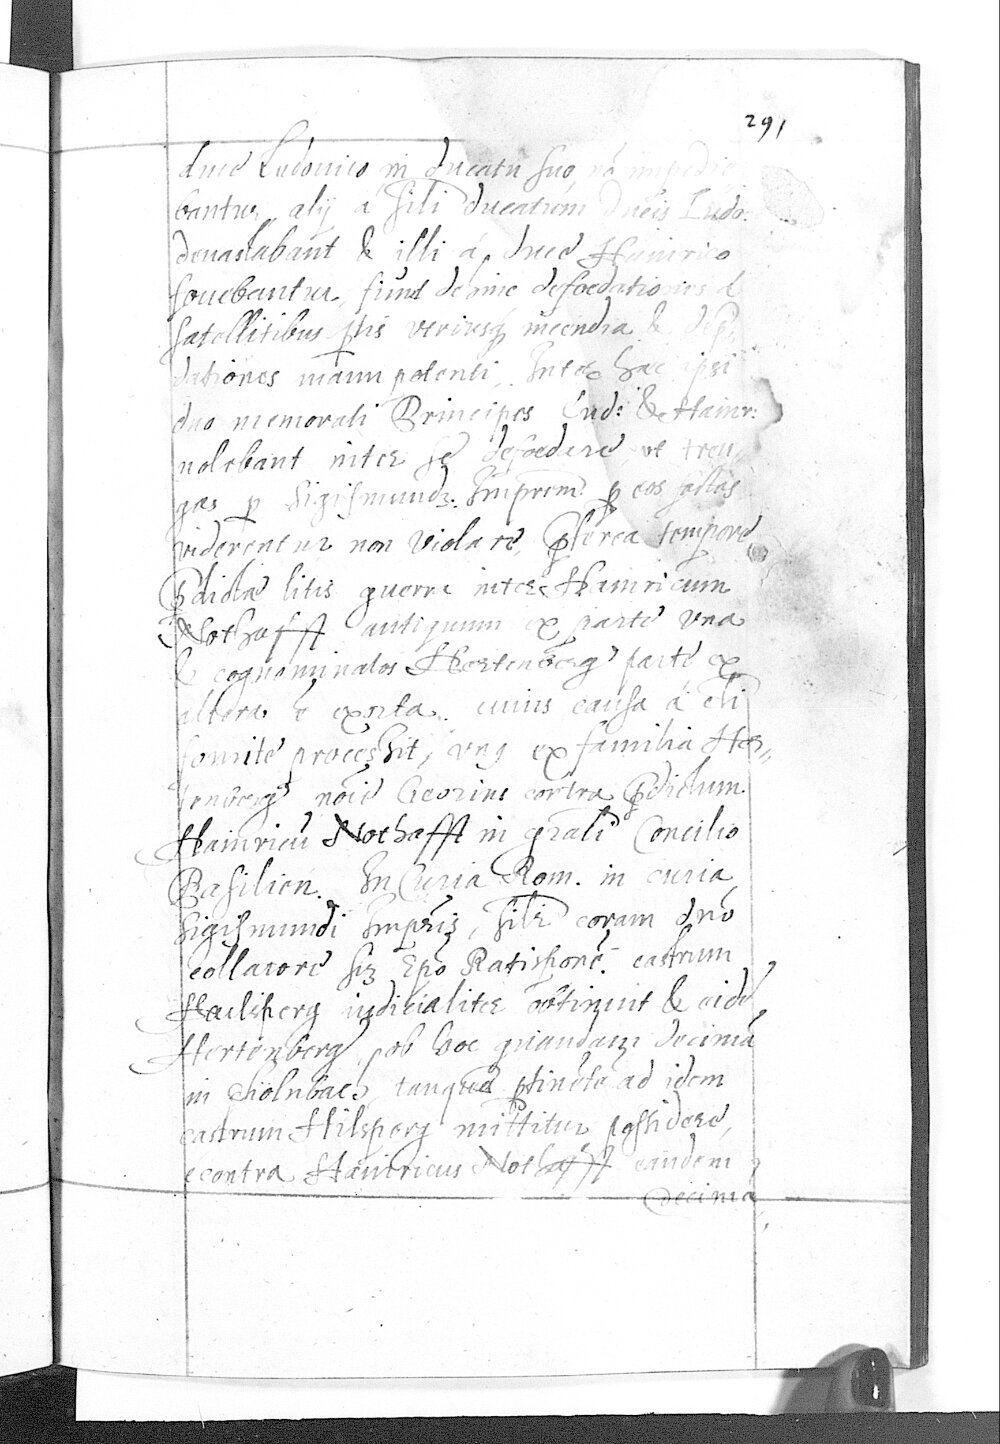 291
duce Ludovico in ducatu suo, nō impedie
bantur, alij á sili ducatum Ducis Ludo:
devastabant & illi á duce Hainrico
fovebantur, fiunt dehinc defoedationes á
satellitibus ptis utriusq incendia & dep
dationes manu potenti, Inter haec ipsi
duo memorati Principes Lud: & Hainr:
nolebant inter se defoedere, ut treu,
gas p Sigismund: p eos factas
viderentur non violare, Pterea tempore
Pdictae litis guerra inter Hainricum
Nothafft antiquum ex parte una
& cognominatos Hertenberg parte ex
altera ē exorta. cuius causa á
fomite processit, unq ex familia Her,,
tenberg noīe Georius contra Pdictum
Hainricū Nothafft in gn̄ali Concilio
Basilien. In Curia Rom. in curia
Sigismundi, silr coram dno
collatore scz Epō Ratispone. castrum
Hailsperg iudicialiter obtinuit & eidē
Hertenberg, ob hoc quandam decimā
in tanquā ptinētē ad idem
castrum Hilsperg mittitur possidere,
econtra Hainricus Nothafft eandem
decimā